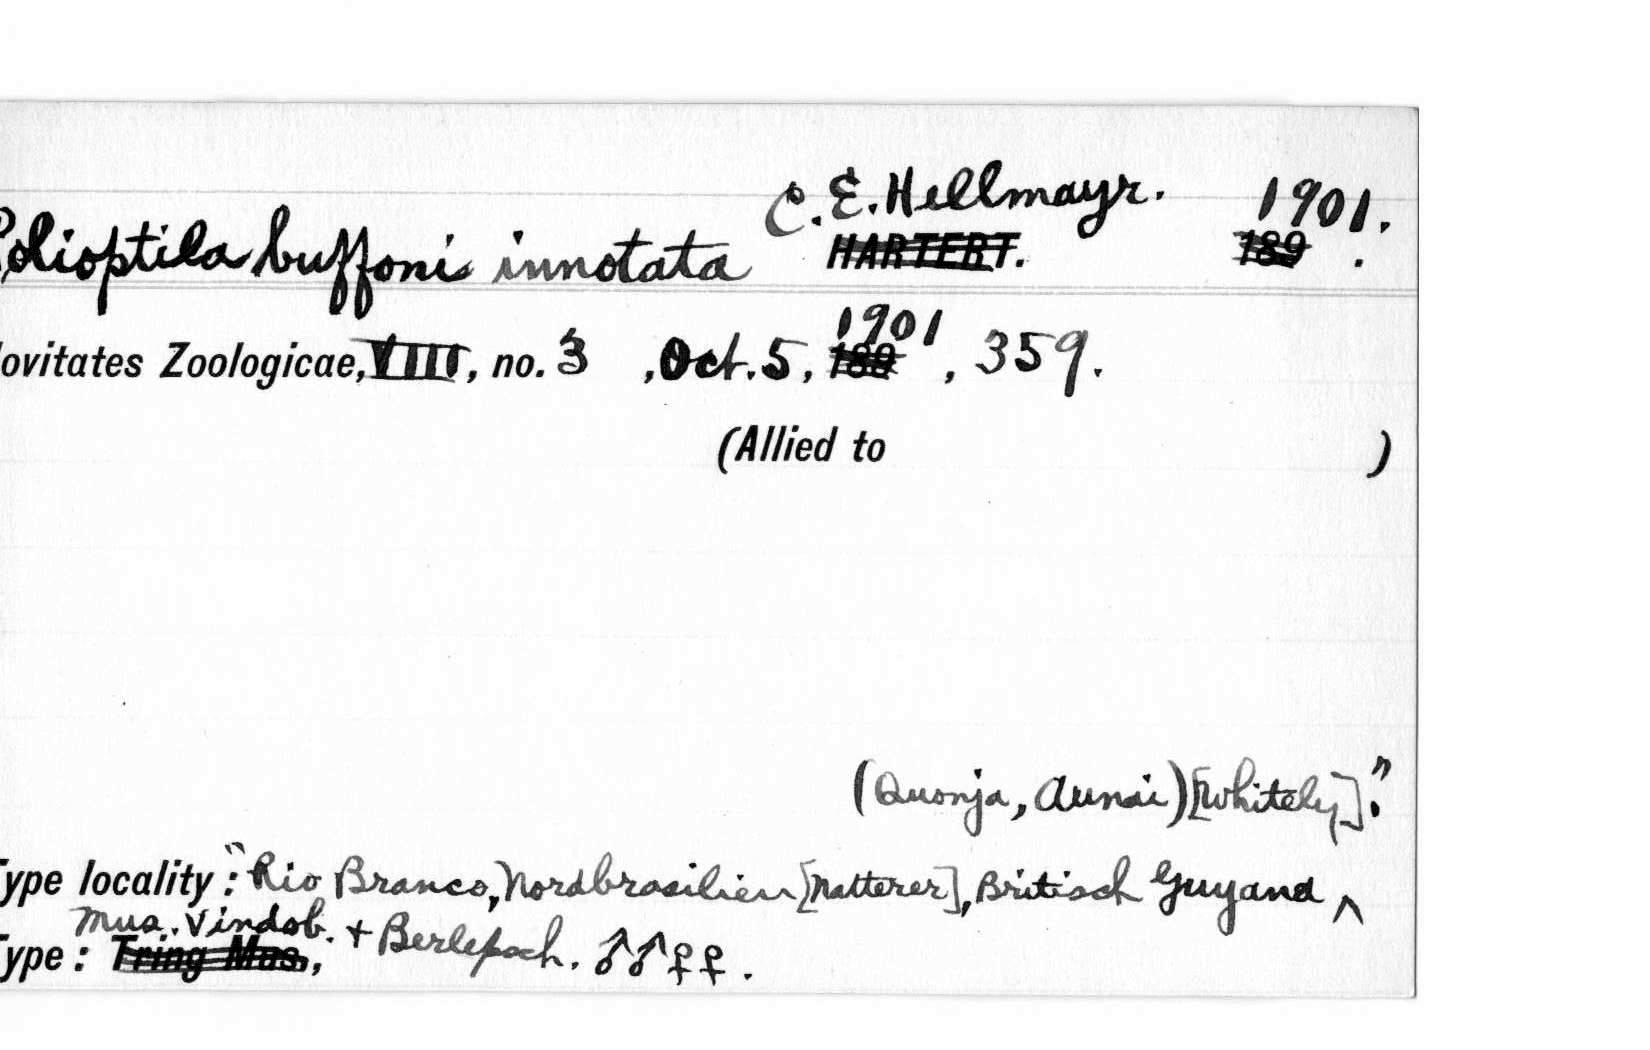 C. E. Hellmayr. 1901.
Polioptila buffoni innotata HARTERT. 189 .
ovitates Zoologicae, VIII, no. 3 , Oct. 5, 1901 189 , 359.
(Allied to )
(Quonja, Aunai) [Whitely]."
ype locality: "Rio Branco, Nordbrasilien [Natterer], Britisch Guyana ^
Mus. Vindob. + Berlepsch. ♂♂♀♀.
ype: Tring Mus.,